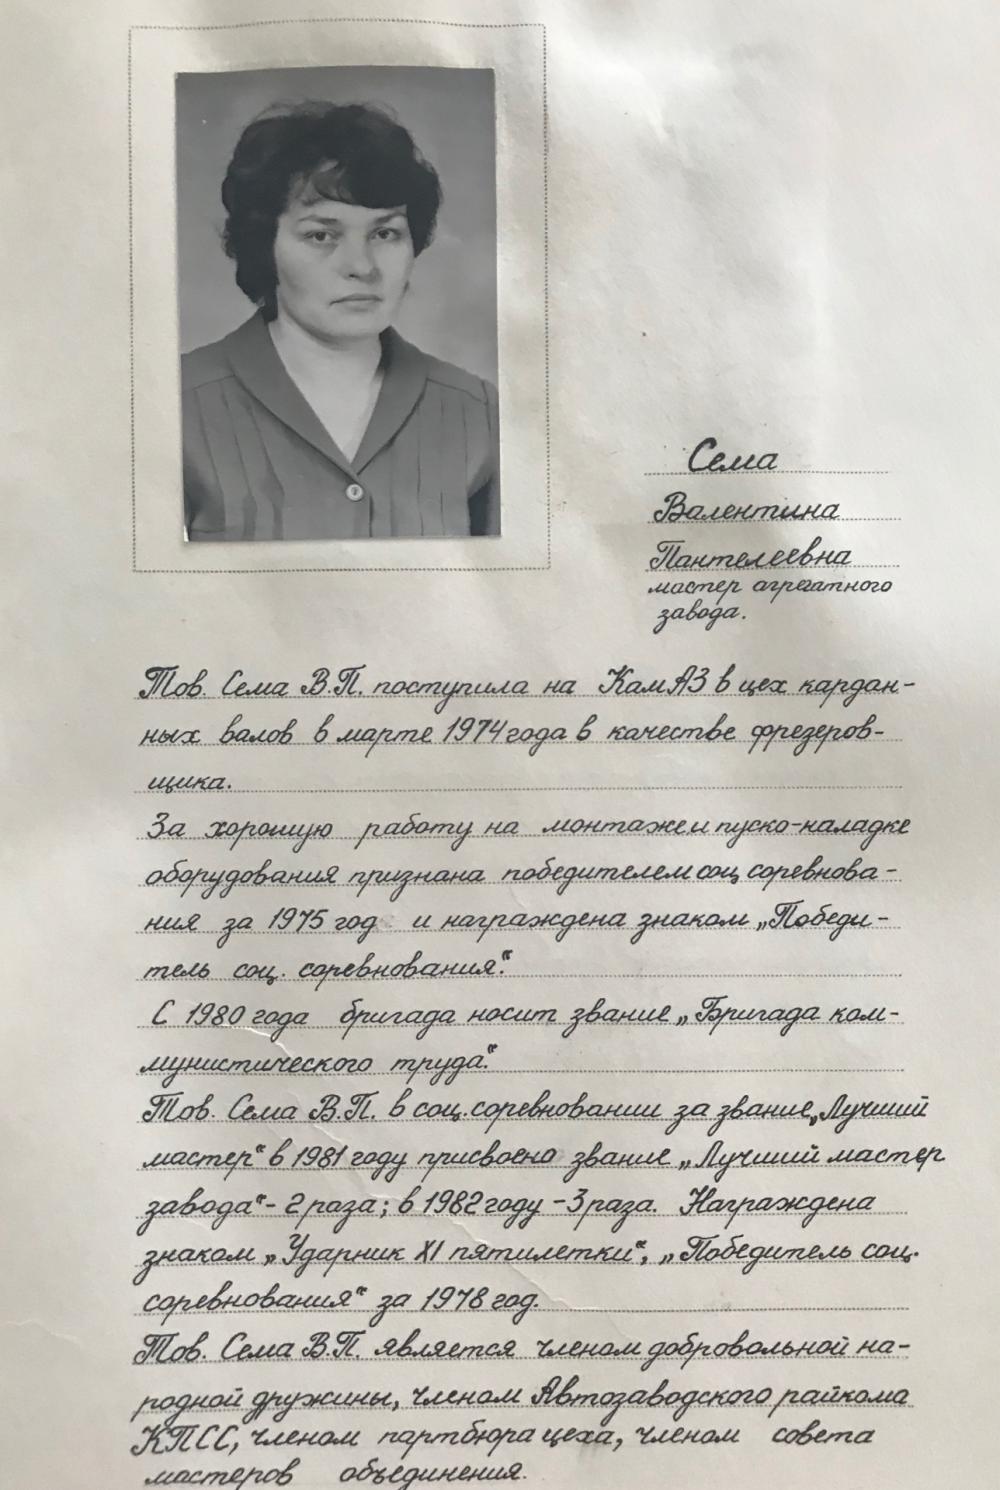 Сема
Валентина
Пантелеевна
мастер агрегатного
завода.
Тов. Сема В.П. поступила на КамАЗ в цех кардан-
ных валов в марте 1974 года в качестве фрезеров-
щика.
За хорошую работу на монтаже и пуско-наладке
оборудования признана победителем соц соревнова-
ния за 1975 год и награждена знаком „Победи-
тель соц. соревнования“.
С 1980 года бригада носит звание „Бригада ком-
мунистического труда“.
Тов. Сема В.П. в соц. соревновании за звание „Лучший
мастер“ в 1981 году присвоено звание „Лучший мастер
завода“ - 2 раза; в 1982 году - 3 раза. Награждена
знаком „Ударник XI пятилетки“, „Победитель соц.
соревнования“ за 1978 год.
Тов. Сема В.П. является членом добровольной на-
родной дружины, членом Автозаводского райкома
КПСС, членом партбюро цеха, членом совета
мастеров объединения.